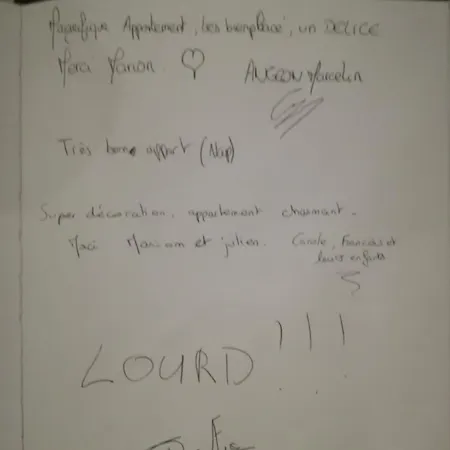 Magnifique Appartement, très bien placé, un DELICE
Merci Manon. ♡ ANGEON Marcelin
Très bon appart (Nap)
Super décoration, appartement charmant.
Merci Mariam et julien. Carole, Francois et
leurs enfants
LOURD !!!